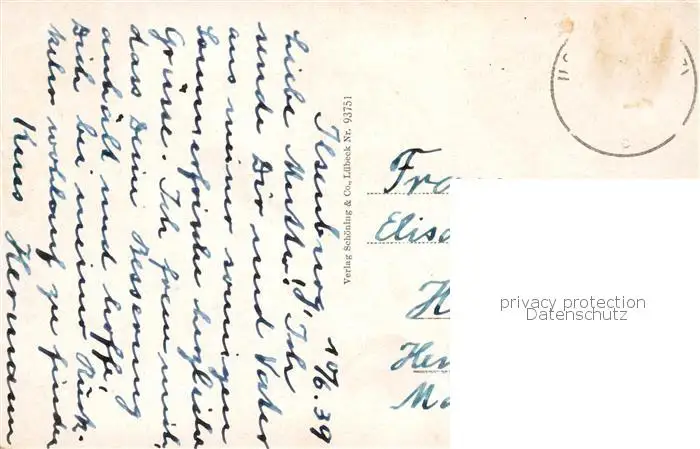 Ilsenburg, 10/6.39
Liebe Mutter! Ich
sende Dir und Vater
aus meiner sonnigen
Sommerfrische herzliche
Grüsse. Ich freue mich,
dass Deine Besserung
anhält und hoffe,
Dich bei meiner Rück-
kehr wohlauf zu finden
Kuss Hermann
Verlag Schöning & Co., Lübeck Nr. 93751
Frau
Elis
H
Her
Ma
privacy protection
Datenschutz